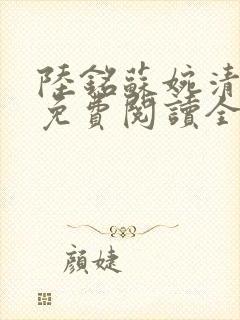 陸銘蘇婉清
免費閱讀全
顏婕